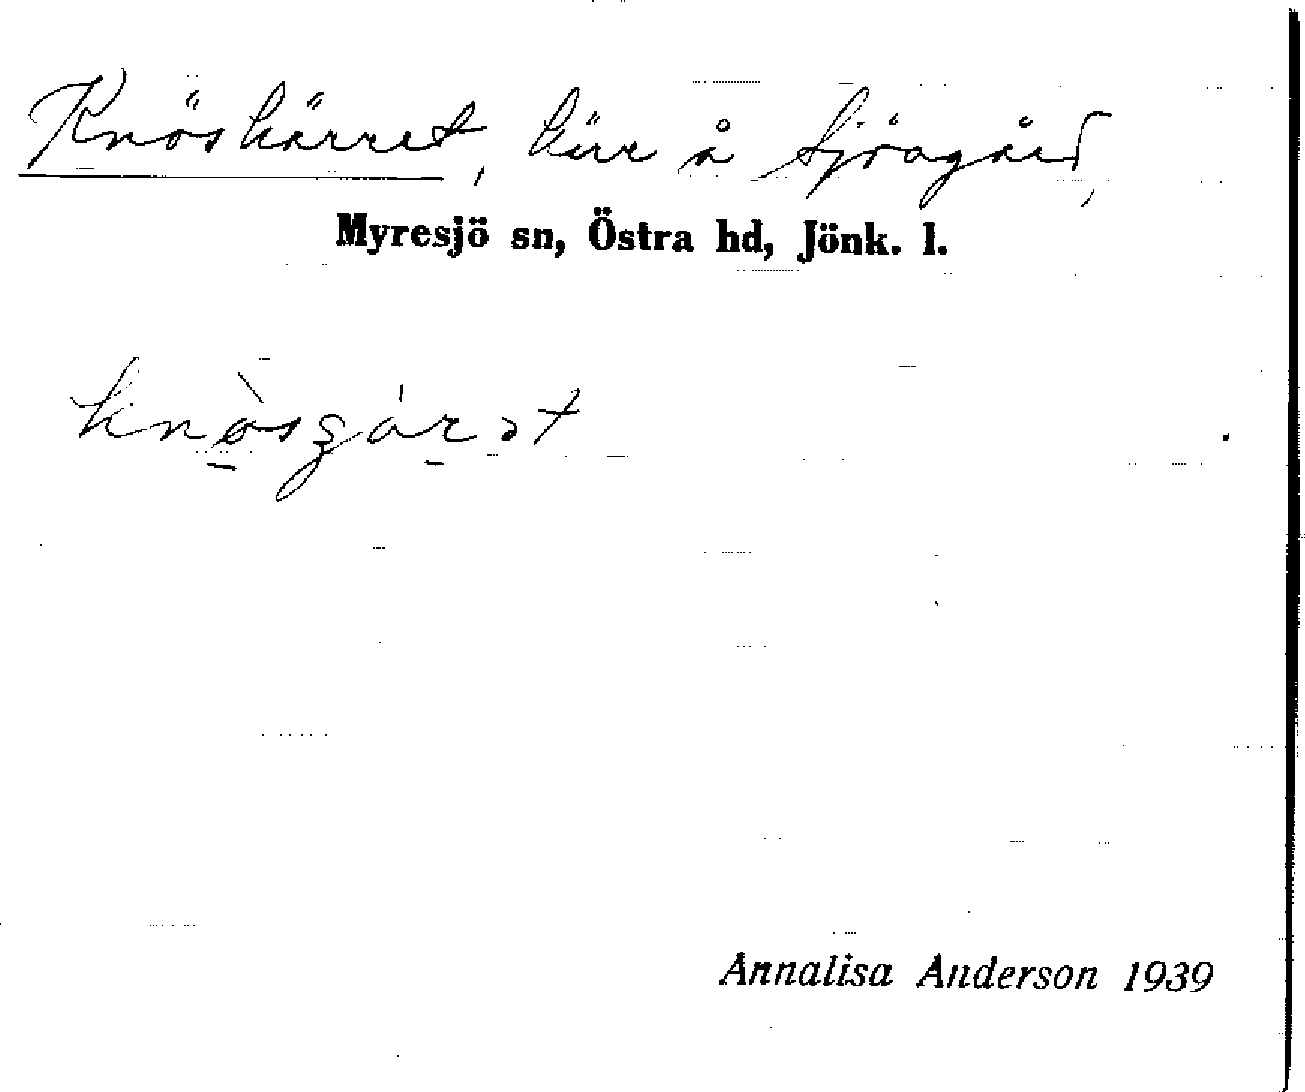 Knöskärret, kärr å Sjöagård,
Myresjö sn, Östra hd, Jönk. l.
Annalisa Anderson 1939